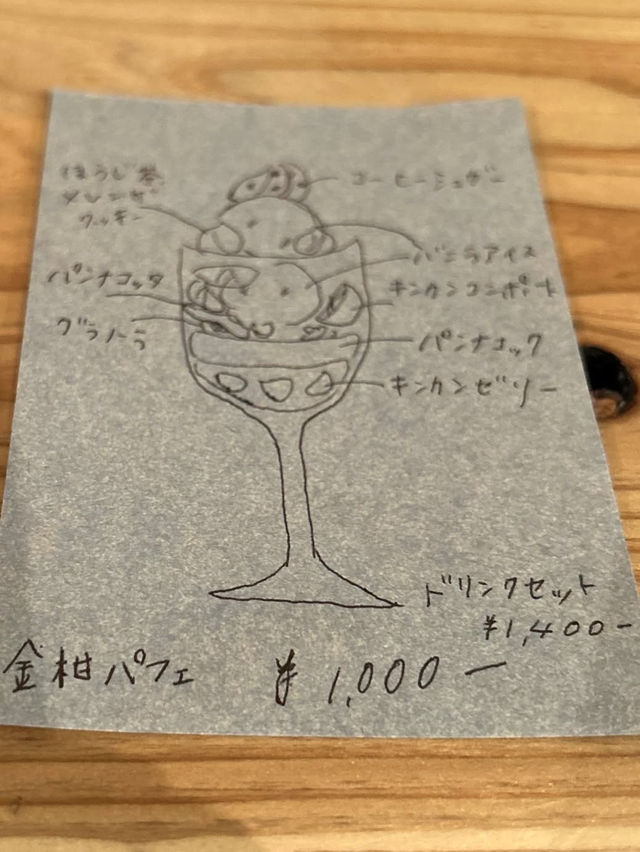 ほうじ茶
メレンゲ
クッキー
コーヒーシュガー
バニラアイス
パンナコッタ
キンカンコンポート
グラノーラ
パンナコッタ
キンカンゼリー
ドリンクセット
¥1,400-
金柑パフェ ¥1,000-